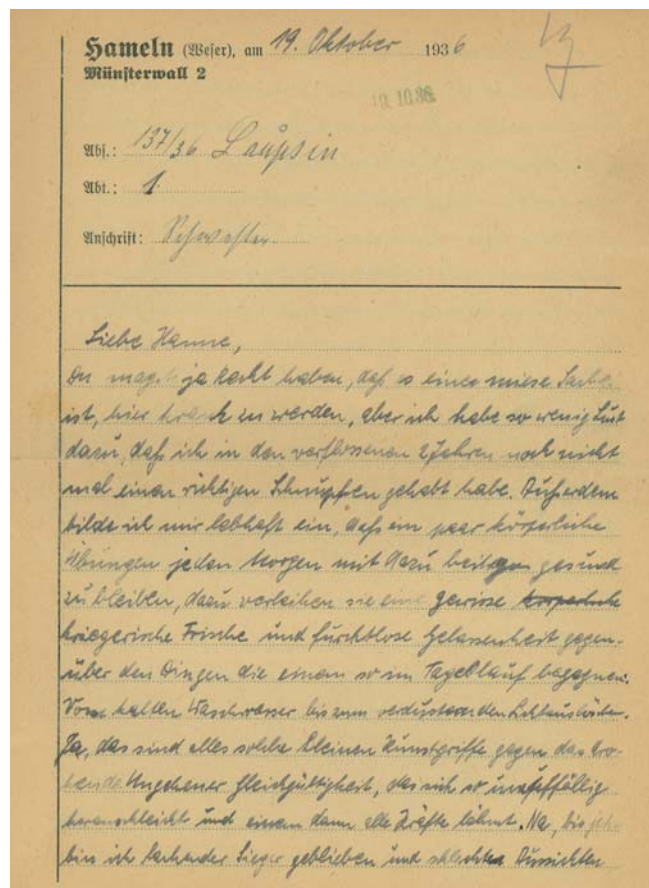 Hameln (Weser), am 19. Oktober 1936
Münsterwall 2
19. 10. 36.
Abs.: 137/36
Abt.: 1.
Anschrift: Schwester
Liebe Hanne,
Du magst ja Recht haben, daß es eine miese Sache
ist, hier krank zu werden, aber ich habe so wenig Lust
dazu, daß ich in den verflossenen 2 Jahren noch nicht
mal einen richtigen Schnupfen gehabt habe. Außerdem
bilde ich mir lebhaft ein, daß ein paar körperliche
Übungen jeden Morgen mit dazu beitragen gesund
zu bleiben, dazu verleihen sie eine gewisse körperliche
kriegerische Frische und furchtlose Gelassenheit gegen-
über den Dingen die einem so im Tageblauf begegnen:
Vom kalten Waschwasser bis zum
Ja, das sind alles solche kleinen Kunstgriffe gegen das dro-
hende Ungeheuer Gleichgültigkeit, das sich so unauffällig
heranschleicht und einem dann alle Kräfte lähmt. Na, bis jetzt
bin ich lachender Sieger geblieben und schlechte Aussichten